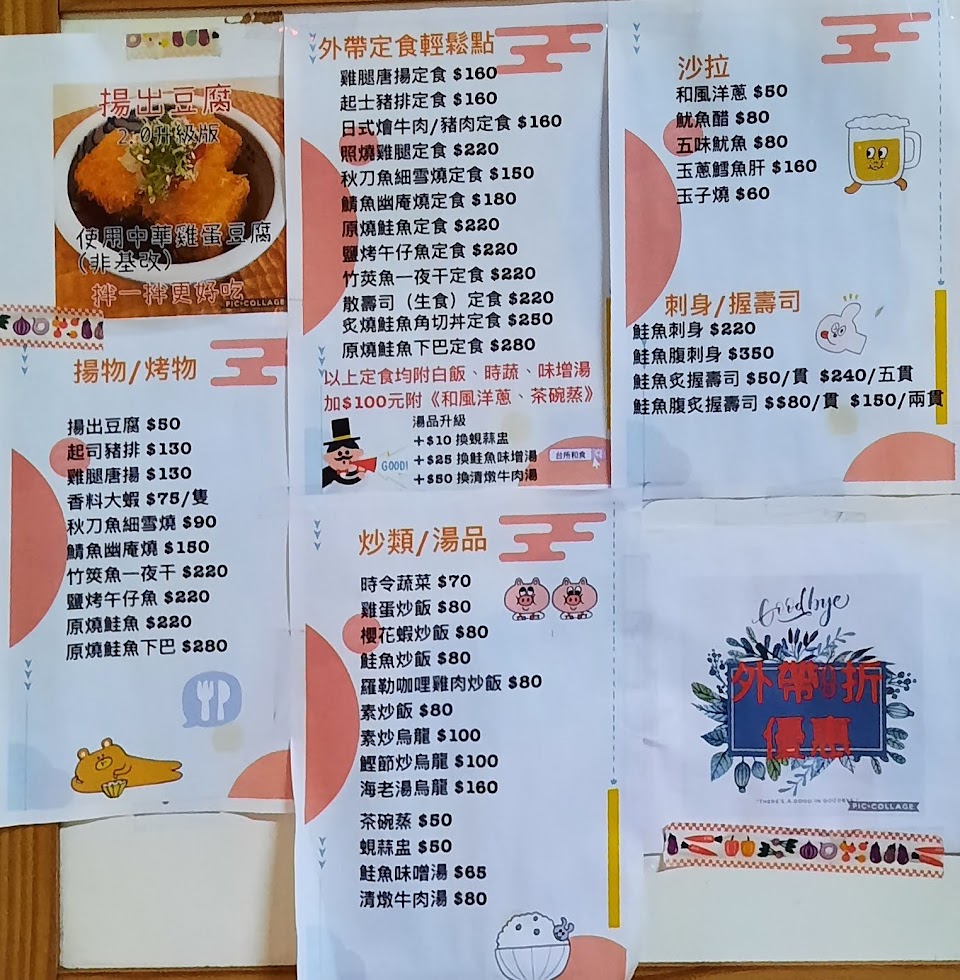 揚出豆腐
2.0升級版
使用中華雞蛋豆腐
(非基改)
拌一拌更好吃
PIC•COLLAGE
揚物/烤物
揚出豆腐 $50
起司豬排 $130
雞腿唐揚 $130
香料大蝦 $75/隻
秋刀魚細雪燒 $90
鯖魚幽庵燒 $150
竹筴魚一夜干 $220
鹽烤午仔魚 $220
原燒鮭魚 $220
原燒鮭魚下巴 $280
外帶定食輕鬆點
雞腿唐揚定食 $160
起士豬排定食 $160
日式燴牛肉/豬肉定食 $160
照燒雞腿定食 $220
秋刀魚細雪燒定食 $150
鯖魚幽庵燒定食 $180
原燒鮭魚定食 $220
鹽烤午仔魚定食 $220
竹莢魚一夜干定食 $220
散壽司（生食）定食 $220
炙燒鮭魚角切丼定食 $250
原燒鮭魚下巴定食 $280
以上定食均附白飯、時蔬、味增湯
加$100元附《和風洋蔥、茶碗蒸》
湯品升級
+$10 換蜆蒜盅
+$25 換鮭魚味增湯
+$50 換清燉牛肉湯
GOOD!
台所和食
炒類/湯品
時令蔬菜 $70
雞蛋炒飯 $80
櫻花蝦炒飯 $80
鮭魚炒飯 $80
羅勒咖哩雞肉炒飯 $80
素炒飯 $80
素炒烏龍 $100
鰹節炒烏龍 $100
海老湯烏龍 $160
茶碗蒸 $50
蜆蒜盅 $50
鮭魚味噌湯 $65
清燉牛肉湯 $80
沙拉
和風洋蔥 $50
魷魚醋 $80
五味魷魚 $80
玉蔥鱈魚肝 $160
玉子燒 $60
刺身/握壽司
鮭魚刺身 $220
鮭魚腹刺身 $350
鮭魚炙握壽司 $50/貫 $240/五貫
鮭魚腹炙握壽司 $$80/貫 $150/兩貫
Goodbye
外帶9折
優惠
"THERE'S A GOOD IN GOODBYE."
PIC•COLLAGE